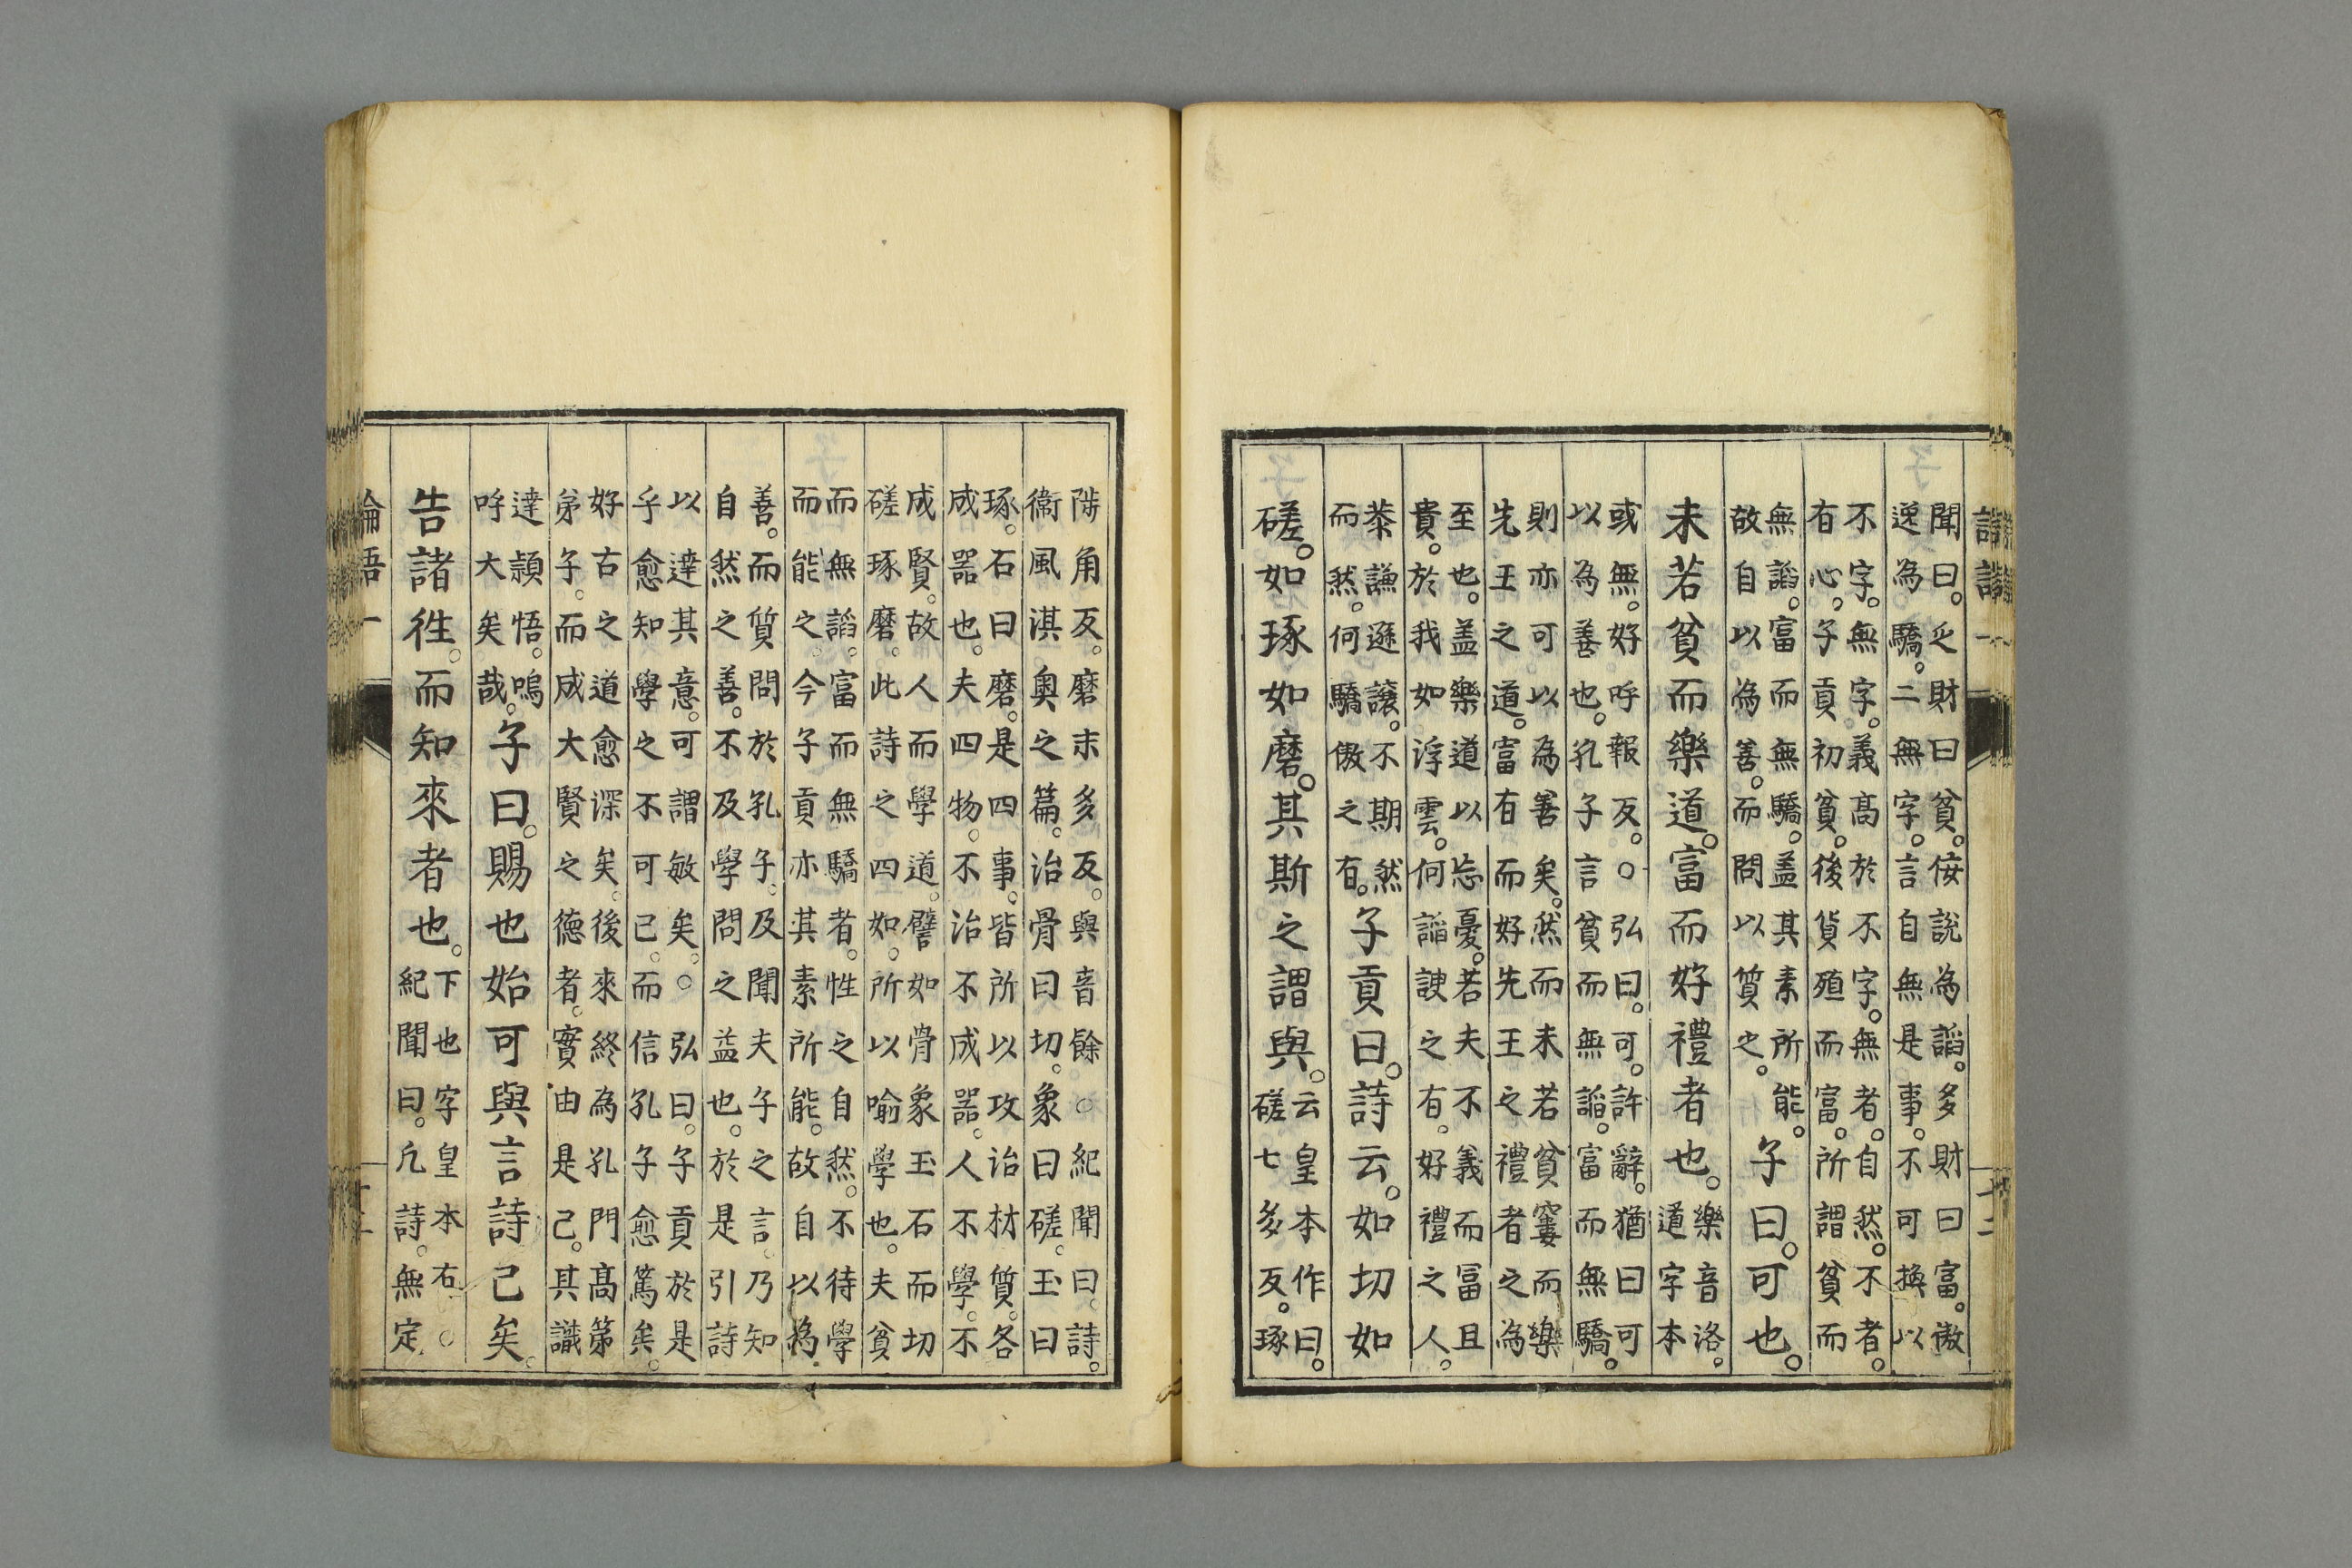 聞曰。乏財曰貧。佞說為諂。多財曰富。傲
逸為驕。二無字。言自無是事。不可換以
不字。無字。義高於不字。無者。自然。不者。
有心。子貢初貧。後貨殖而富。所謂貧而
無諂。富而無驕。盖其素所能。
故自以為善。而問以質之。
子曰。可也。
未若貧而樂道。富而好禮者也。
樂音洛。
道字本
或無。好呼報反。○弘曰。可。許辭。猶曰可
以為善也。孔子言貧而無諂。富而無驕。
則亦可以為善矣。然而未若貧窶而樂
先王之道。富有而好先王之禮者之為
至也。盖樂道以忘憂。若夫不義而冨且
貴。於我如浮雲。何諂諛之有。好禮之人。
恭謙遜讓。不期然
而然。何驕傲之有。
子貢曰。詩云。如切如
磋。如琢如磨。其斯之謂與。
云皇本作曰。
磋七多反。琢
陟角反。磨末多反。與音餘○紀聞曰。詩。
衞風淇奥之篇。治骨曰切。象曰磋。玉曰
琢。石曰磨。是四事。皆所以攻治材質。各
成器也。夫四物。不治不成器。人不學。不
成賢。故人而學道。譬如骨象玉石而切
磋琢磨。此詩之四如。所以喻學也。夫貧
而無諂。富而無驕者。性之自然。不待學
而能之。今子貢亦其素所能。故自以為
善。而質問於孔子。及聞夫子之言。乃知
自然之善。不及學問之益也。於是引詩
以達其意。可謂敏矣。○弘曰。子貢於是
乎愈知學之不可已。而信孔子愈篤矣。
好古之道愈深矣。後來終為孔門高第
弟子。而成大賢之德者。實由是已。其識
達穎悟。嗚
呼大矣哉。
子曰。賜也始可與言詩已矣。
告諸徃。而知來者也。
下也字皇本右。○
紀聞曰。凢詩。無定
論語一